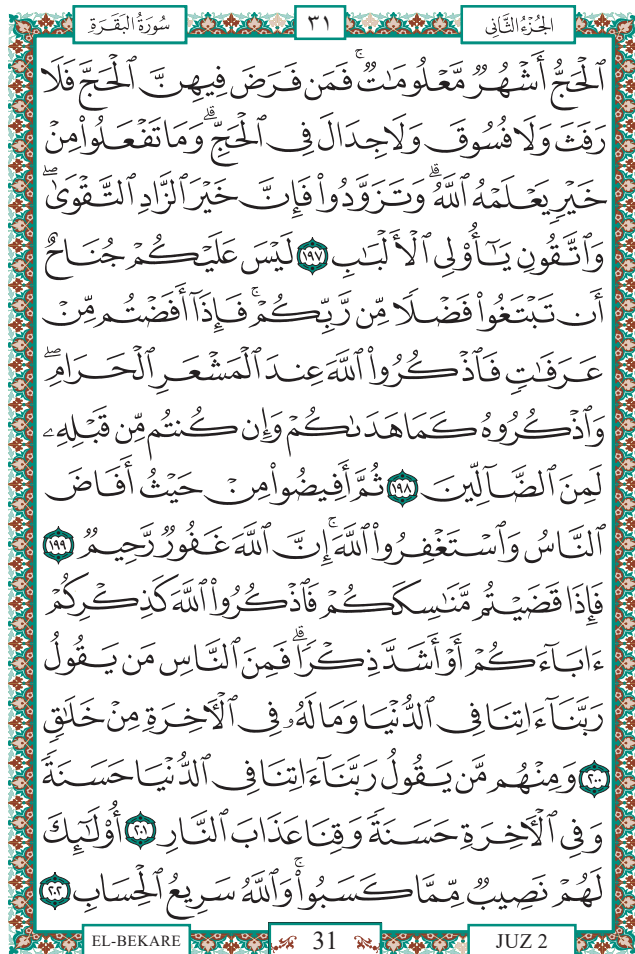 الجُزْءُ الثَّانِي
٣١
سُورَةُ البَقَرَةِ
ٱلْحَجُّ أَشْهُرٌ مَّعْلُومَٰتٌ ۚ فَمَن فَرَضَ فِيهِنَّ ٱلْحَجَّ فَلَا
رَفَثَ وَلَا فُسُوقَ وَلَا جِدَالَ فِى ٱلْحَجِّ ۗ وَمَا تَفْعَلُوا۟ مِنْ
خَيْرٍ يَعْلَمْهُ ٱللَّهُ ۗ وَتَزَوَّدُوا۟ فَإِنَّ خَيْرَ ٱلزَّادِ ٱلتَّقْوَىٰ ۖ
وَٱتَّقُونِ يَٰٓأُو۟لِى ٱلْأَلْبَٰبِ ١٩٧ لَيْسَ عَلَيْكُمْ جُنَاحٌ
أَن تَبْتَغُوا۟ فَضْلًا مِّن رَّبِّكُمْ ۚ فَإِذَآ أَفَضْتُم مِّنْ
عَرَفَٰتٍ فَٱذْكُرُوا۟ ٱللَّهَ عِندَ ٱلْمَشْعَرِ ٱلْحَرَامِ ۖ
وَٱذْكُرُوهُ كَمَا هَدَىٰكُمْ وَإِن كُنتُم مِّن قَبْلِهِۦ
لَمِنَ ٱلضَّآلِّينَ ١٩٨ ثُمَّ أَفِيضُوا۟ مِنْ حَيْثُ أَفَاضَ
ٱلنَّاسُ وَٱسْتَغْفِرُوا۟ ٱللَّهَ ۚ إِنَّ ٱللَّهَ غَفُورٌ رَّحِيمٌ ١٩٩
فَإِذَا قَضَيْتُم مَّنَٰسِكَكُمْ فَٱذْكُرُوا۟ ٱللَّهَ كَذِكْرِكُمْ
ءَابَآءَكُمْ أَوْ أَشَدَّ ذِكْرًا ۗ فَمِنَ ٱلنَّاسِ مَن يَقُولُ
رَبَّنَآ ءَاتِنَا فِى ٱلدُّنْيَا وَمَا لَهُۥ فِى ٱلْءَاخِرَةِ مِنْ خَلَٰقٍ
٢٠٠ وَمِنْهُم مَّن يَقُولُ رَبَّنَآ ءَاتِنَا فِى ٱلدُّنْيَا حَسَنَةً
وَفِى ٱلْءَاخِرَةِ حَسَنَةً وَقِنَا عَذَابَ ٱلنَّارِ ٢٠١ أُو۟لَٰٓئِكَ
لَهُمْ نَصِيبٌ مِّمَّا كَسَبُوا۟ ۚ وَٱللَّهُ سَرِيعُ ٱلْحِسَابِ ٢٠٢
EL-BEKARE
31
JUZ 2